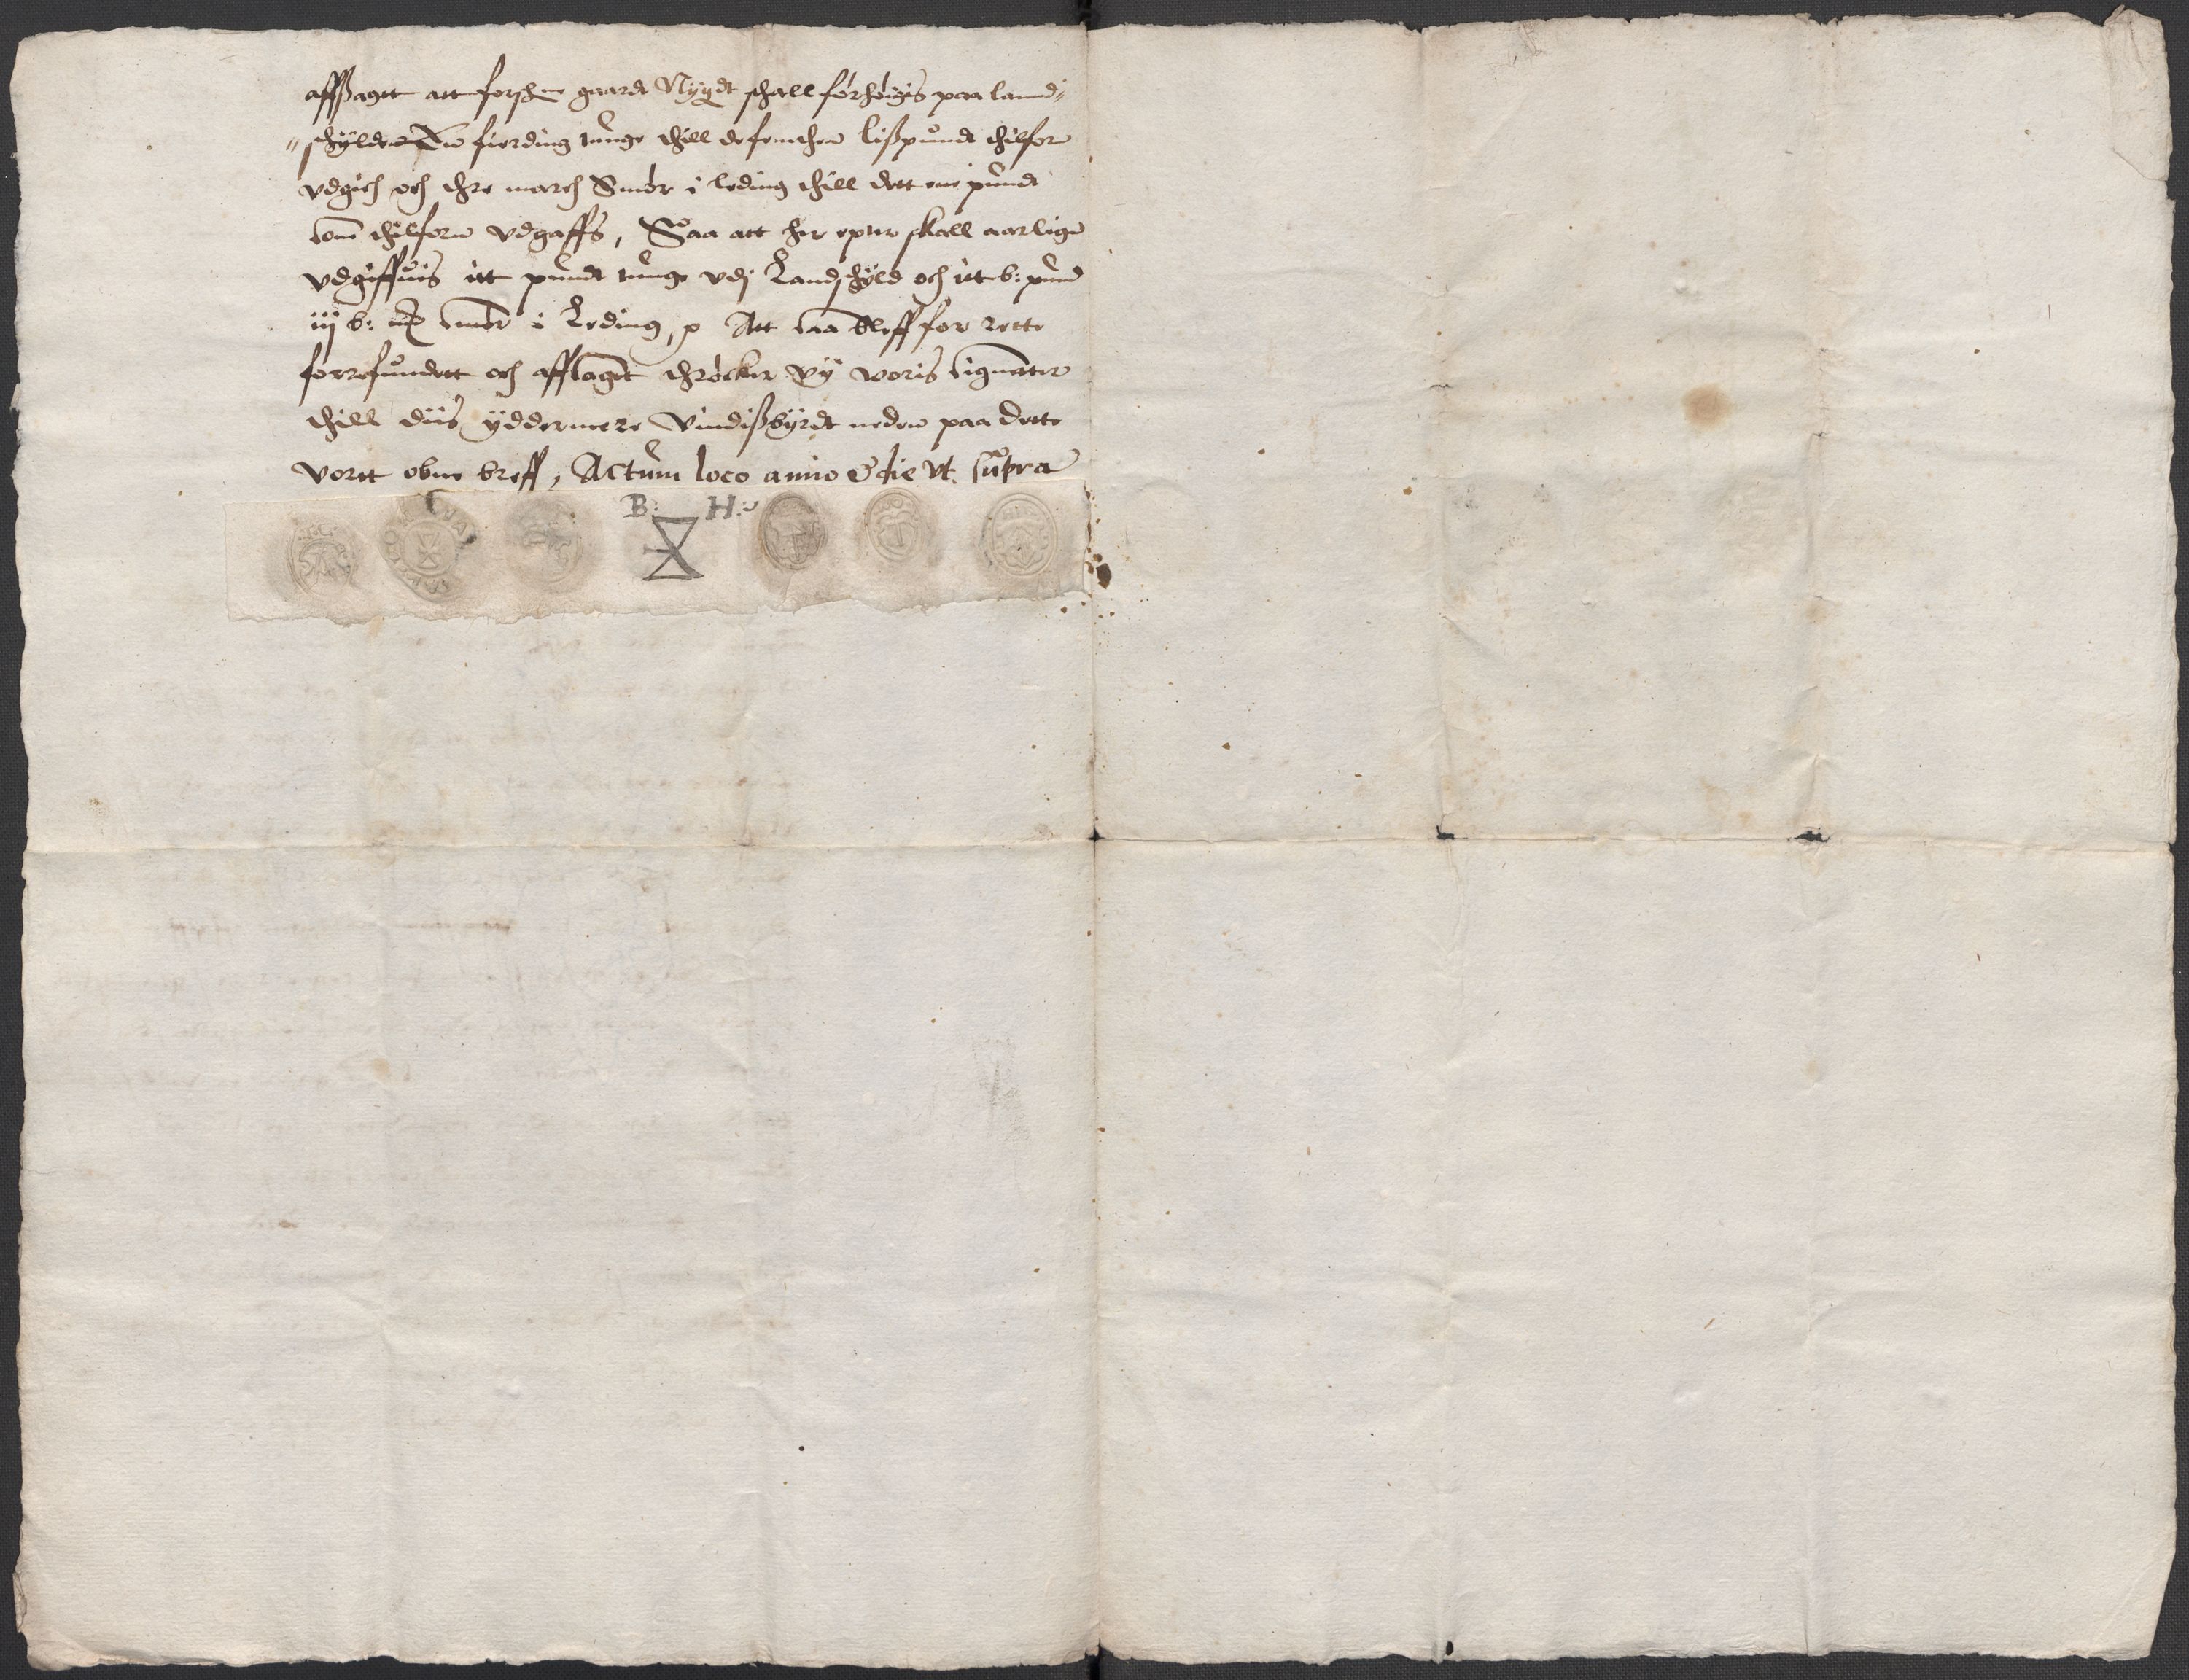 affßagtt att forschne gaardt Nygdt schall forhøigis paa lannd„
„schyldenn Enn fierding tunge thill de femthen lißpundt thilforn
vdgich och thre march Smør i leding thill dett ene pundt
som thilforn vdgaffs, Saa att her epter skall aarligen
vdgiffuis itt pundt tunge vdj Landschyld och itt b: pund
iij b: mk smør i Leding, Att saa bleff for rette
forrefundett och affsagtt throcker vy woris signeter
thill diis ydermere vindißbyrdt neden paa dette
vortt obne breff, Actum loco anno & die vt supra
B: H: